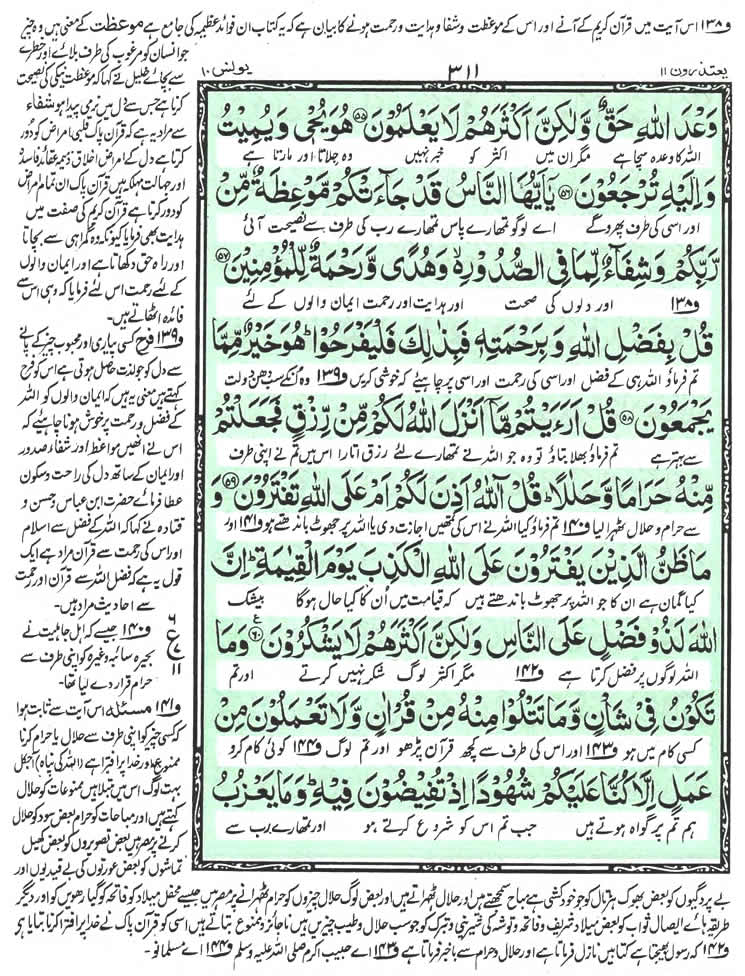 و۱۳۸ اس آیت میں قرآن کریم کے آنے اور اس کے موعظت و شفا و ہدایت و رحمت ہونے کا بیان ہے کہ یہ کتاب ان فوائد عظیمہ کی جامع ہے موعظت کے معنی ہیں وہ چیز
جو انسان کو مرغوب کی طرف بلائے اور خطرے
سے بچائے خلیل نے کہا کہ موعظت نیکی کی نصیحت
کرنا ہے جس سے دل میں نرمی پیدا ہو شفاء
سے مراد یہ ہے کہ قرآن پاک قلبی امراض کو دور
کرتا ہے دل کے امراض اخلاق ذمیمہ عقائد فاسدہ
اور جہالت مہلکہ ہیں قرآن پاک ان تمام امراض
کو دور کرتا ہے قرآن کریم کی صفت میں
ہدایت بھی فرمایا کیونکہ وہ گمراہی سے بچاتا
اور راہ حق دکھاتا ہے اور ایمان والوں
کے لئے رحمت اس لئے فرمایا کہ وہی اس سے
فائدہ اٹھاتے ہیں۔
و۱۳۹ فرح کسی پیاری اور محبوب چیز کے پانے
سے دل کو جو لذت حاصل ہوتی ہے اس کو فرح
کہتے ہیں معنی یہ ہیں کہ ایمان والوں کو اللہ
کے فضل و رحمت پر خوش ہونا چاہئے کہ
اس نے انھیں مواعظ اور شفاء صدور
اور ایمان کے ساتھ دل کی راحت و سکون
عطا فرمائے حضرت ابن عباس و حسن و
قتادہ نے کہا کہ اللہ کے فضل سے اسلام
اور اس کی رحمت سے قرآن مراد ہے ایک
قول یہ ہے کہ فضل اللہ سے قرآن اور رحمت
سے احادیث مراد ہیں۔
و۱۴۰ جیسے کہ اہل جاہلیت نے
بحیرہ سائبہ وغیرہ کو اپنی طرف سے
حرام قرار دے لیا تھا۔
و۱۴۱ مسئلہ اس آیت سے ثابت ہوا
کہ کسی چیز کو اپنی طرف سے حلال یا حرام کرنا
ممنوع اور خدا پر افترا ہے (اللہ کی پناہ) آجکل
بہت لوگ اس میں مبتلا ہیں ممنوعات کو حلال
کہتے ہیں اور مباحات کو حرام بعض سود کو حلال
کرنے پر مصر ہیں بعض تصویروں کو بعض کھیل
تماشوں کو بعض عورتوں کی بے قیدیوں اور
یعتذرون ۱۱
۳۱۱
یونس ۱۰
وَعْدَ اللّٰهِ حَقٌّ وَّلٰكِنَّ اَكْثَرَهُمْ لَا يَعْلَمُوْنَ ۵۵ هُوَ يُحْيٖ وَيُمِيْتُ
اللہ کا وعدہ سچا ہے مگر ان میں اکثر کو خبر نہیں وہ جلاتا اور مارتا ہے
وَاِلَيْهِ تُرْجَعُوْنَ ۵۶ يٰٓاَيُّهَا النَّاسُ قَدْ جَآءَتْكُمْ مَّوْعِظَةٌ مِّنْ
اور اسی کی طرف پھرو گے اے لوگو تمھارے پاس تمھارے رب کی طرف سے نصیحت آئی
رَّبِّكُمْ وَشِفَآءٌ لِّمَا فِى الصُّدُوْرِ وَهُدًى وَّرَحْمَةٌ لِّلْمُؤْمِنِيْنَ ۵۷
و۱۳۸ اور دلوں کی صحت اور ہدایت اور رحمت ایمان والوں کے لئے
قُلْ بِفَضْلِ اللّٰهِ وَبِرَحْمَتِهٖ فَبِذٰلِكَ فَلْيَفْرَحُوْا هُوَ خَيْرٌ مِّمَّا
تم فرماؤ اللہ ہی کے فضل اور اسی کی رحمت اور اسی پر چاہئے کہ خوشی کریں و۱۳۹ وہ ان کے سب دھن دولت
يَجْمَعُوْنَ ۵۸ قُلْ اَرَءَيْتُمْ مَّآ اَنْزَلَ اللّٰهُ لَكُمْ مِّنْ رِّزْقٍ فَجَعَلْتُمْ
سے بہتر ہے تم فرماؤ بھلا بتاؤ تو وہ جو اللہ نے تمھارے لئے رزق اتارا اس میں تم نے اپنی طرف
مِّنْهُ حَرَامًا وَّحَلٰلًا قُلْ آٰللّٰهُ اَذِنَ لَكُمْ اَمْ عَلَى اللّٰهِ تَفْتَرُوْنَ ۵۹ وَ
سے حرام و حلال ٹھہرا لیا و۱۴۰ تم فرماؤ کیا اللہ نے اس کی تمھیں اجازت دی یا اللہ پر جھوٹ باندھتے ہو و۱۴۱ اور
مَا ظَنُّ الَّذِيْنَ يَفْتَرُوْنَ عَلَى اللّٰهِ الْكَذِبَ يَوْمَ الْقِيٰمَةِ اِنَّ
کیا گمان ہے ان کا جو اللہ پر جھوٹ باندھتے ہیں کہ قیامت میں ان کا کیا حال ہوگا بیشک
اللّٰهَ لَذُوْ فَضْلٍ عَلَى النَّاسِ وَلٰكِنَّ اَكْثَرَهُمْ لَا يَشْكُرُوْنَ ۶۰ وَمَا
اللہ لوگوں پر فضل کرتا ہے و۱۴۲ مگر اکثر لوگ شکر نہیں کرتے اور تم
تَكُوْنُ فِىْ شَاْنٍ وَّمَا تَتْلُوْا مِنْهُ مِنْ قُرْاٰنٍ وَّلَا تَعْمَلُوْنَ مِنْ
کسی کام میں ہو و۱۴۳ اور اس کی طرف سے کچھ قرآن پڑھو اور تم لوگ و۱۴۴ کوئی کام کرو
عَمَلٍ اِلَّا كُنَّا عَلَيْكُمْ شُهُوْدًا اِذْ تُفِيْضُوْنَ فِيْهِ وَمَا يَعْزُبُ
ہم تم پر گواہ ہوتے ہیں جب تم اس کو شروع کرتے ہو اور تمھارے رب سے
۶
ع
۱۱
بے پردگیوں کو بعض بھوک ہڑتال کو جو خودکشی ہے مباح سمجھتے ہیں اور حلال ٹھہراتے ہیں اور بعض لوگ حلال چیزوں کو حرام ٹھہرانے پر مصر ہیں جیسے محفل میلاد کو فاتحہ کو گیارھویں کو اور دیگر
طریقہ ہائے ایصال ثواب کو بعض میلاد شریف و فاتحہ و توشہ کی شیرینی و تبرک کو جو سب حلال و طیب چیزیں ہیں ناجائز و ممنوع بتاتے ہیں اسی کو قرآن پاک نے خدا پر افترا کرنا بتایا ہے
و۱۴۲ کہ رسول بھیجتا ہے کتابیں نازل فرماتا ہے اور حلال و حرام سے باخبر فرماتا ہے و۱۴۳ اے حبیب اکرم صلی اللہ علیہ وسلم و۱۴۴ اے مسلمانو۔